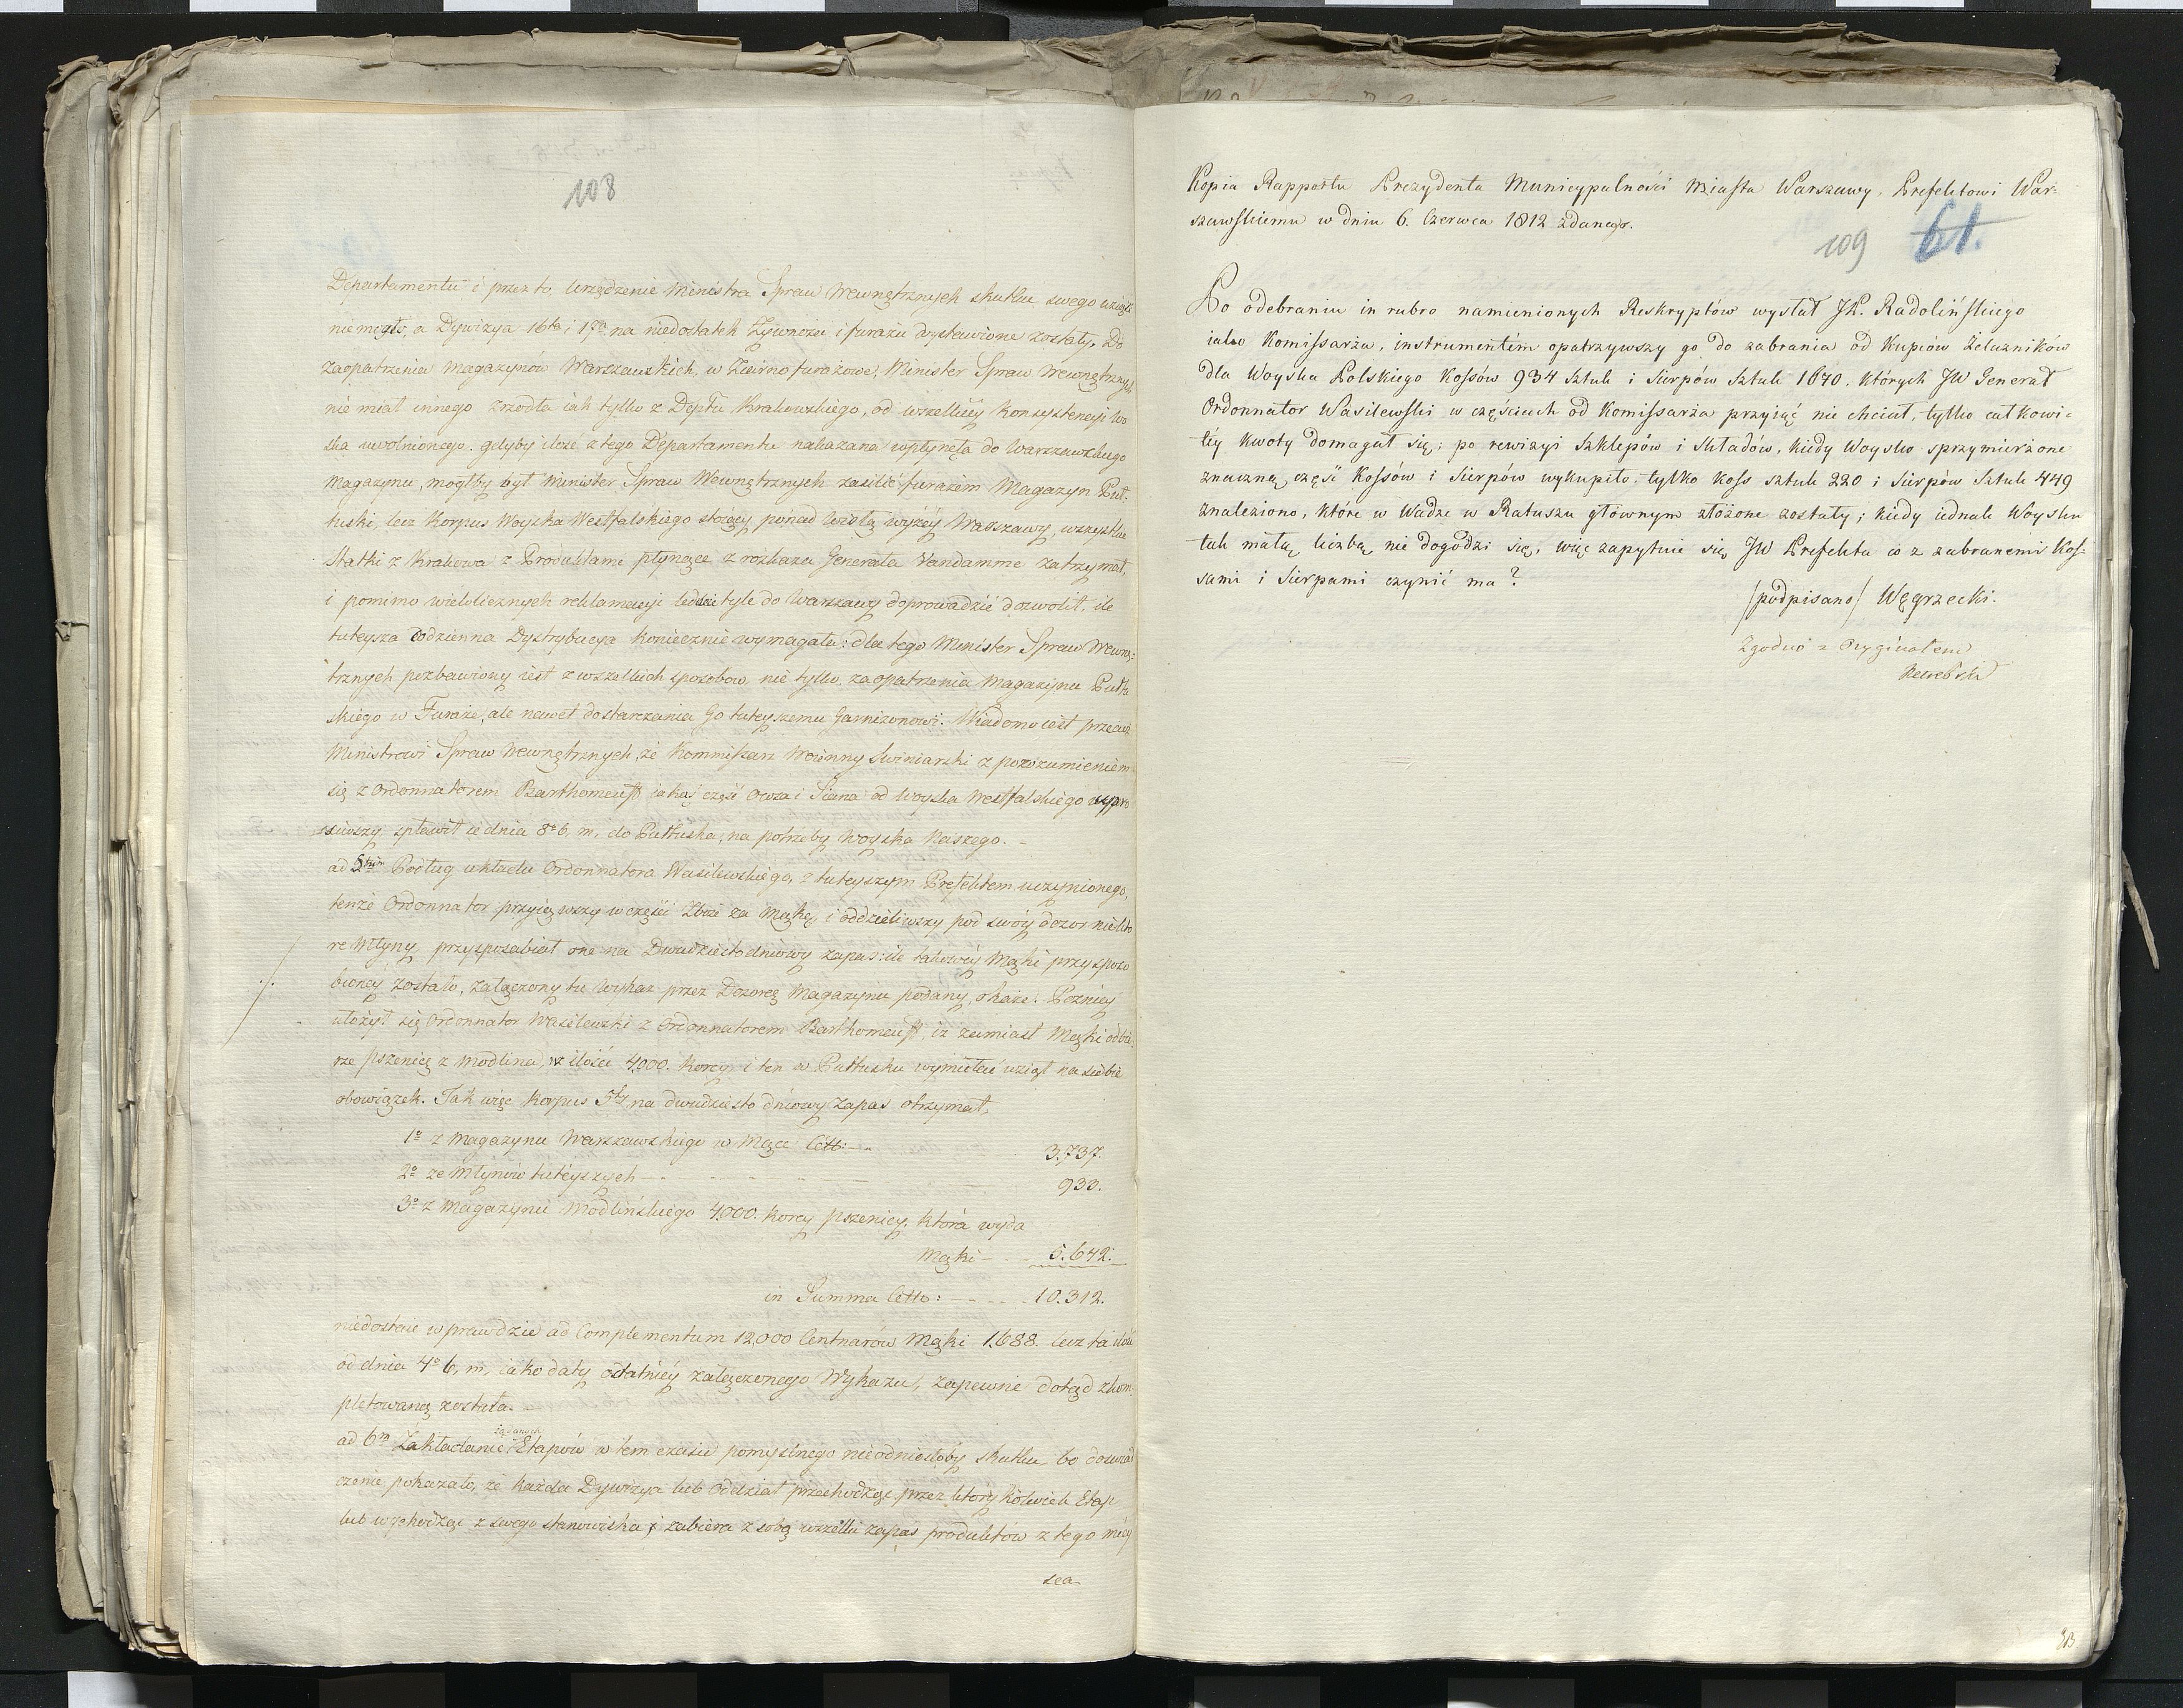 108
Departamentu i przez to, urządzenie Ministra Spraw Wewnętrznych skutku swego wziąść
niemogło, a Dywizya 16ta i 17a na niedostatek Żywności i furażu wystawione zostały. Do
zaopatrzenia Magazynów Warszawskich, w Ziarno furażowe, Minister Spraw Wewnętrznych
nie miał innego zrzodła iak tylko z Depttu Krakowskiego, od wszelkiey Konsystencyi Wo
ska uwolnionego. gdyby ilość z tego Departamentu nakazana wpłynęła do Warszawskiego
Magazynu, mogłby był Minister Spraw Wewnętrznych zasilić furażem Magazyn Puł-
tuski, lecz Korpus Woyska Westfalskiego stoiący ponad Wisłą wyżey Warszawy, wszystkie
Statki z Krakowa z Produktami płynące z rozkazu Generała Vandamme zatrzymał,
i pomimo wielolicznych reklamacyi ledwie tyle do Warszawy doprowadzić dozwolił, ile
tuteysza codzienna Dystrybucya koniecznie wymagała: dla tego Minister Spraw Wewnę-
trznych pozbawiony iest z wszelkich sposobow nie tylko zaopatrzenia Magazynu Pułtu
skiego w Furaże, ale nawet dostarczania Go tuteyszemu Garnizonowi. Wiadomo iest przecież
Ministrowi Spraw Wewnętrznych, że Kommissarz Woienny Swiniarski z porozumieniem
się z Ordonnatorem Barthomeuff iakąś część Owsa i Siana od Woyska Westfalskiego wypro
siwszy, spławił w dnia 8o b. m. do Pułtuska, na potrzeby Woyska Naszego. -
ad 5tum Podług układu Ordonnatora Wasilewskiego, z tuteyszym Prefektem uczynionego,
tenże Ordonnator przyiąwszy w części Zboże za Mąkę i oddzieliwszy pod swóy dozor niektó
re Młyny, przysposabiał one na Dwudziesto dniowy zapas: ile takowéy Mąki przysposo
bionéy zostało, załączony tu Wykaz przez Dozorcę Magazynu podany, okaże. Pozniey
ułożył się Ordonnator Wasilewski z Ordonnatorem Barthomeuff, iż zamiast Mąki odbie-
rze pszenicę z Modlina, w ilości 4,000. Korcy, i ten w Pułtusku wymełcie wziął na siebie
obowiązek. Tak więc Korpus 5ty na dwudziesto dniowy zapas otrzymał,
1o z Magazynu Warszawskiego w Mące Cett: - .. 3.737.
2o ze Młynów tutéyszych - .. 933.
3o z Magazynu Modlińskiego 4,000. Korcy pszenicy, która wyda
Mąki - .. 5.642.
in Summa Cettr: - .. 10.312.
niedostaie wprawdzie ad Complementum 12,000 Centnarów Mąki 1.688. lecz ta ilość
od dnia 4o b. m, iako daty ostatniéy załączonego Wykazu, zapewnie dotąd zkom-
pletowaną została. -
żądanych
ad 6m Zakładanie Etapów w tem czasie pomyślnego nieodniosłoby skutku, bo doswiad
czenie pokazało, że każda Dywizya lub Oddział przechodząc przez który kolwiek Etap
lub wychodząc z swego stanowiska, zabiera z sobą wszelki zapas produktów z tego miey
sca
Kopia Rapportu Prezydenta Municypalności Miasta Warszawy, Prefektowi War-
szawskiemu w dniu 6. Czerwca 1812 zdanego.
109 61.
Po odebraniu in rubro namienionych Reskryptów wysłał JP. Radolińskiego
iako Komissarza, instrumentem opatrzywszy go do zabrania od Kupców Żelazników
dla Woyska Polskiego Kossów 934 Sztuk i Sierpów Sztuk 1670. których JW Generał
Ordonnator Wasilewski w częściach od Komissarza przyiąć nie chciał, tylko całkowi-
téy kwoty domagał się; po rewizyi Szklepów i Składów, kiedy Woysko sprzymierzone
znaczną część Kossów i Sierpów wykupiło, tylko Koss sztuk 220 i Sierpów Sztuk 449
znaleziono, które w Wadze w Ratuszu głównym złożone zostały; kiedy iednak Woysku
tak małą liczbą nie dogodzi się, więc zapytuie się JW Prefekta co z zabranemi Kos-
sami i Sierpami czynić ma?
/podpisano/ Węgrzecki.
Zgodno z Oryginałem